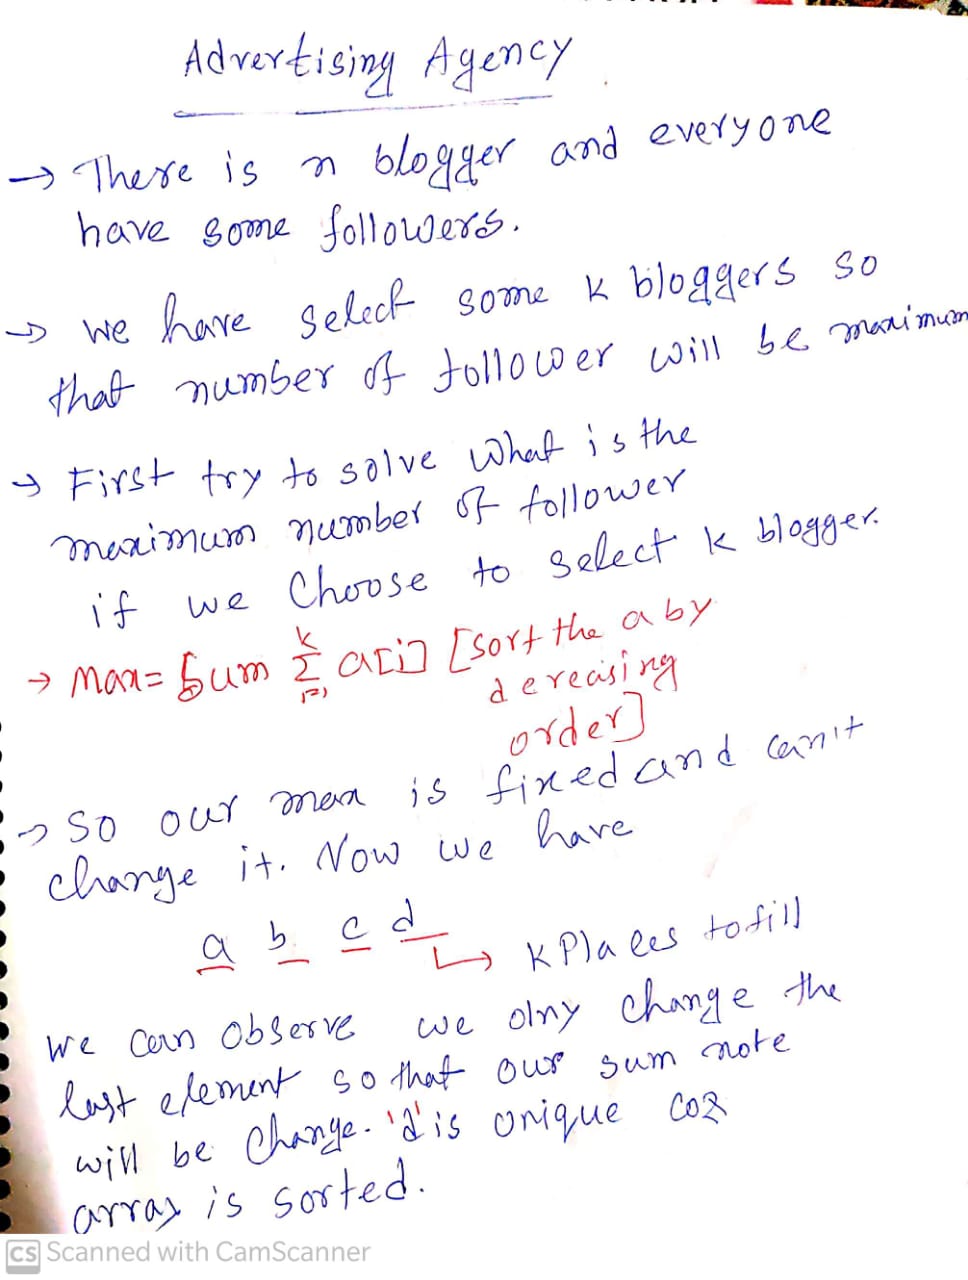 Advertising Agency
→ There is n blogger and everyone
have some followers.
→ we have select some k bloggers so
that number of follower will be maximum
→ First try to solve what is the
maximum number of follower
if we Choose to select k blogger.
→ Max= Sum k Σ i=1 a[i] [sort the a by
dereasing
order]
→ So our max is fixed and can't
change it. Now we have
a b c d
↳ k Places to fill
we can observe we olny change the
last element so that our sum note
will be change. 'd' is unique coz
array is sorted.
CS Scanned with CamScanner